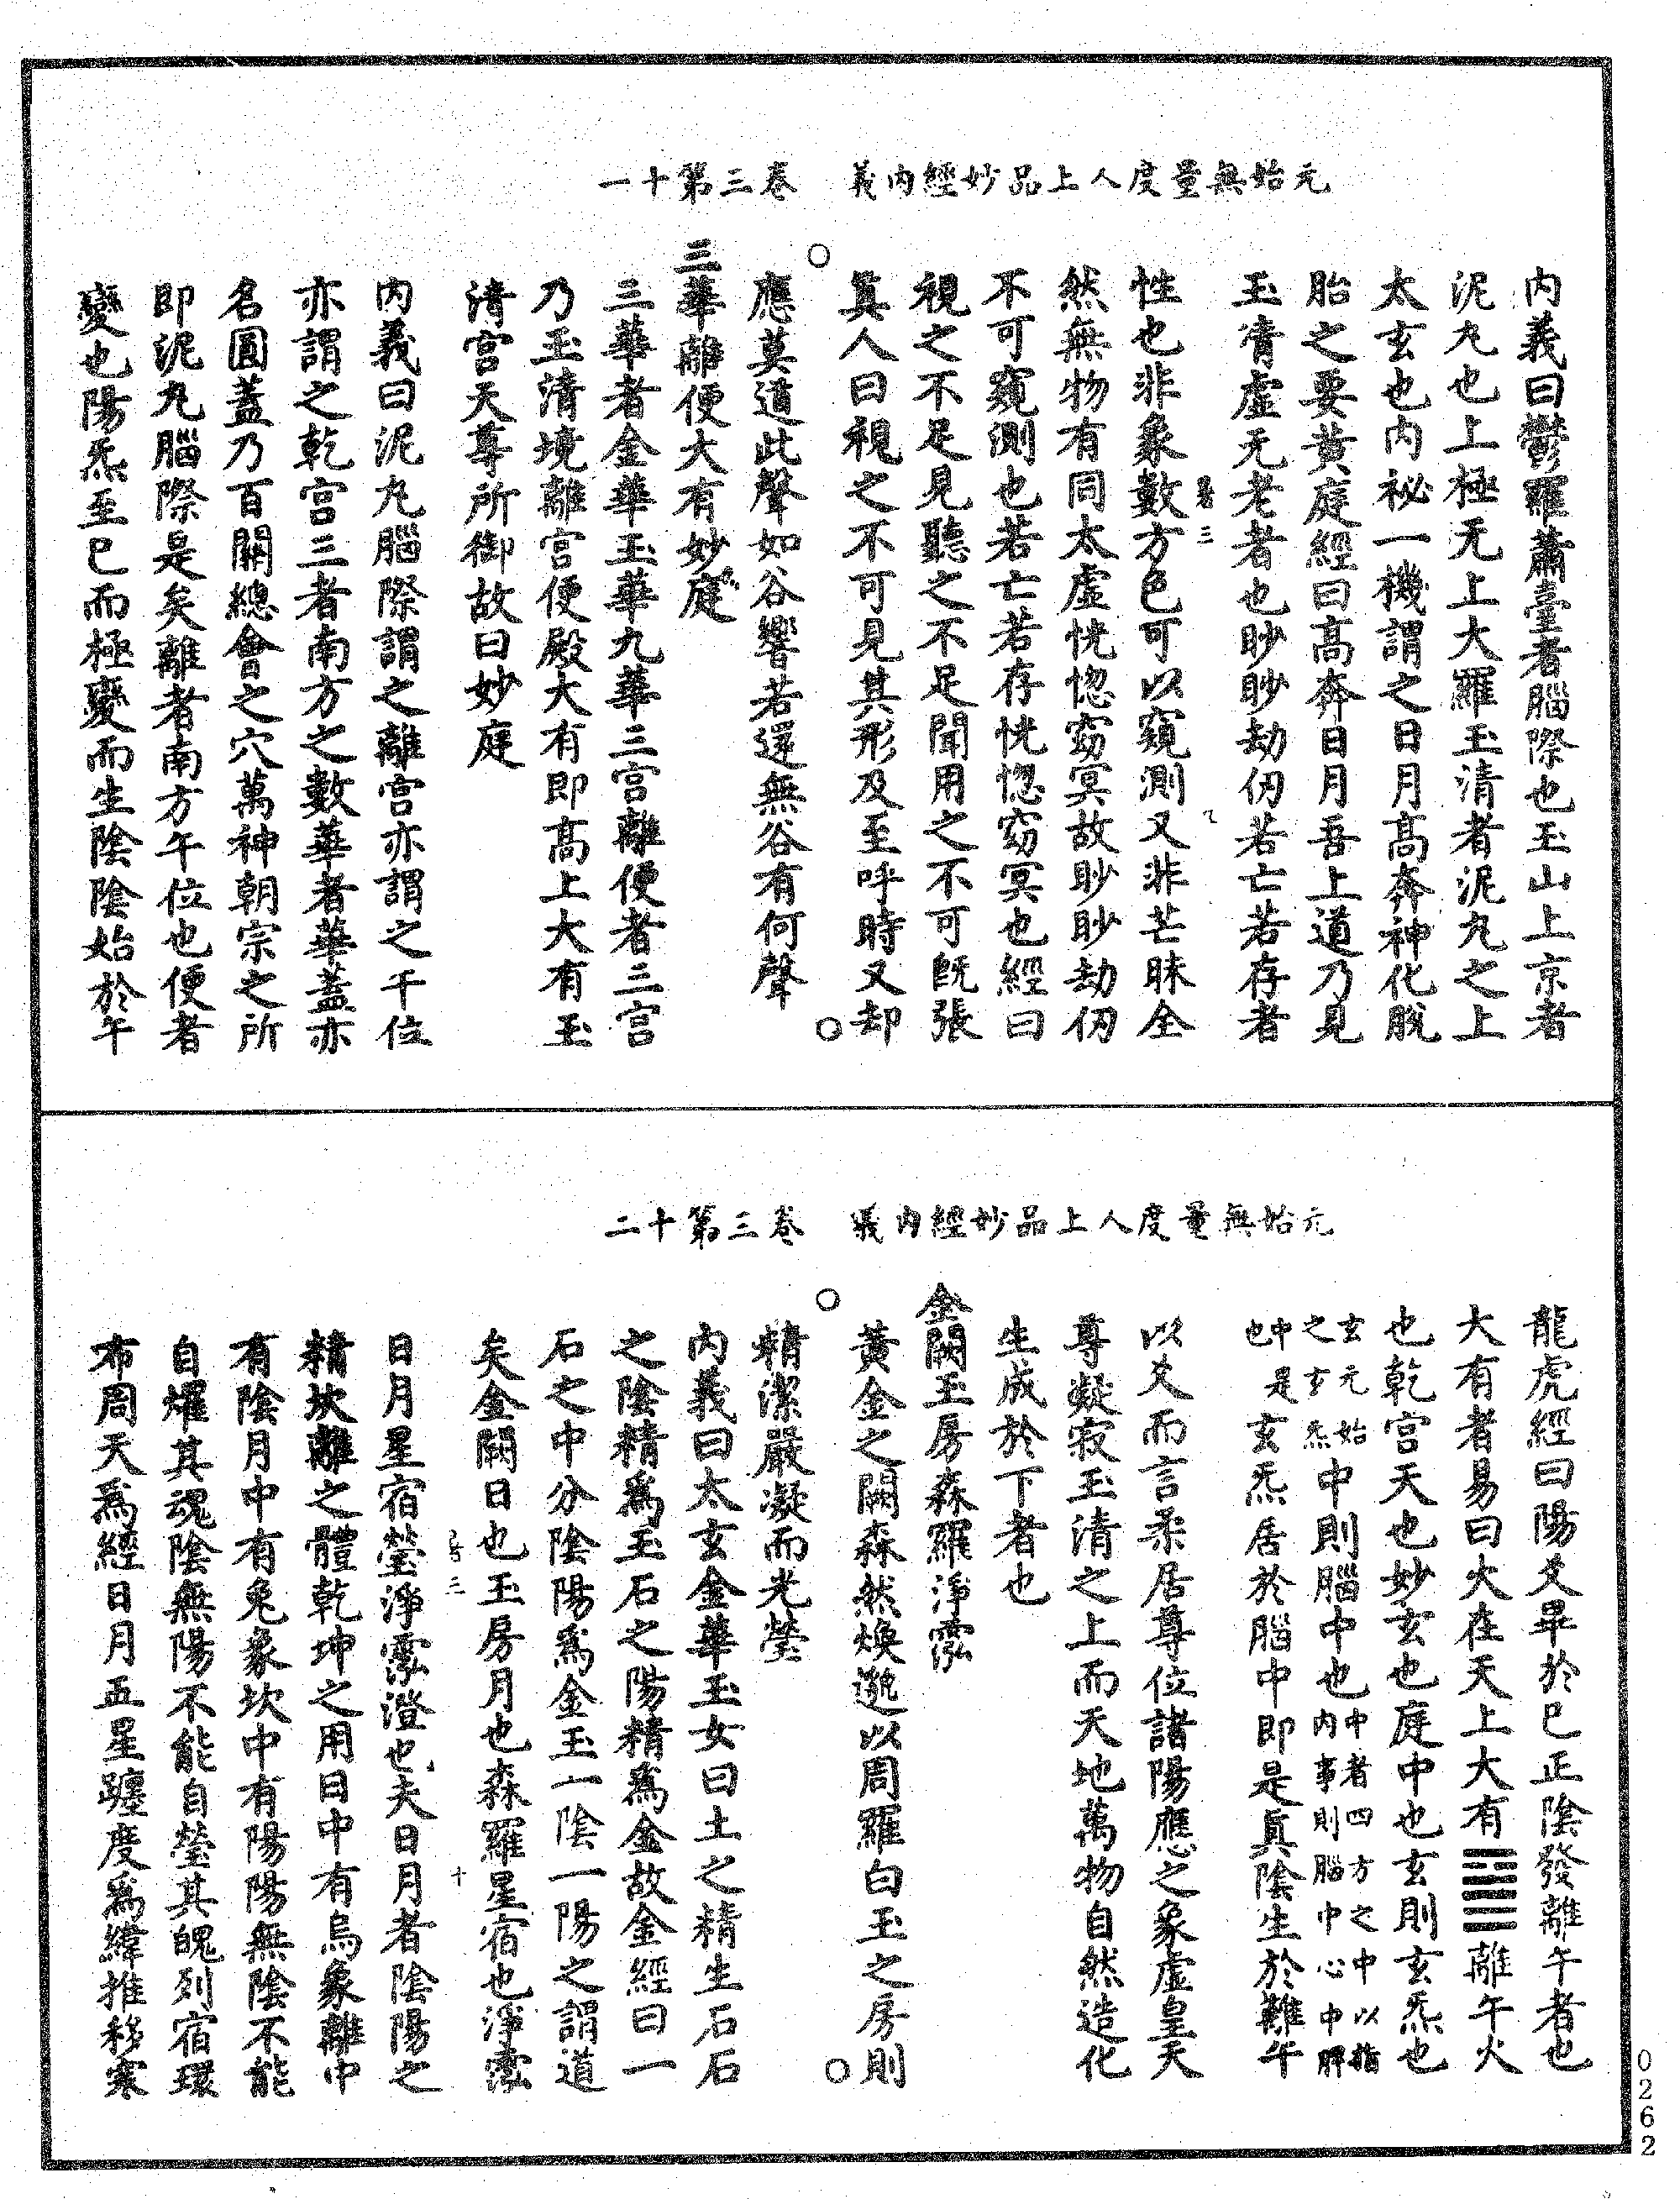 元始無量度人上品妙經內義　卷三第十一
內義曰鬱羅蕭臺者腦際也玉山上京者
泥丸也上極无上大羅玉清者泥丸之上
太玄也內祕一機謂之日月高奔神化脫
胎之要黃庭經曰高奔日月吾上道乃見
玉清虛无老者也眇眇劫仞若亡若存者
性也非象數方色可以窺測又非芒昧全
然無物有同太虛恍惚窈冥故眇眇劫仞
不可窺測也若亡若存恍惚窈冥也經曰
視之不足見聽之不足聞用之不可旣張
眞人曰視之不可見其形及至呼時又却
應莫道此聲如谷響若還無谷有何聲
三華離便大有妙庭
三華者金華玉華九華三宮離便者三宮
乃玉清境離宮便殿大有即高上大有玉
清宮天尊所御故曰妙庭
內義曰泥丸腦際謂之離宮亦謂之午位
亦謂之乾宮三者南方之數華者華蓋亦
名圓蓋乃百關總會之穴萬神朝宗之所
即泥丸腦際是矣離者南方午位也便者
變也陽炁至巳而極變而生陰陰始於午
元始無量度人上品妙經內義　卷三第十二
龍虎經曰陽爻畢於巳正陰發離午者也
大有者易曰火在天上大有䷍離午火
也乾宮天也妙玄也庭中也玄則玄炁也
玄元始之玄炁中則腦中也中者四方之中以指內事則腦中心中脾中也是玄炁居於腦中即是眞陰生於離午
以爻而言柔居尊位諸陽應之象虛皇天
尊凝寂玉清之上而天地萬物自然造化
生成於下者也
金闕玉房森羅淨泓
黃金之闕森然煥邈以周羅白玉之房則
精潔嚴凝而光瑩
內義曰太玄金華玉女曰土之精生石石
之陰精爲玉石之陽精爲金故金經曰一
石之中分陰陽爲金玉一陰一陽之謂道
矣金闕日也玉房月也森羅星宿也淨泓
日月星宿瑩淨泓澄也夫日月者陰陽之
精坎離之體乾坤之用日中有烏象離中
有陰月中有兔象坎中有陽陽無陰不能
自燿其魂陰無陽不能自瑩其魄列宿環
布周天爲經日月五星躔度爲緯推移寒
0262